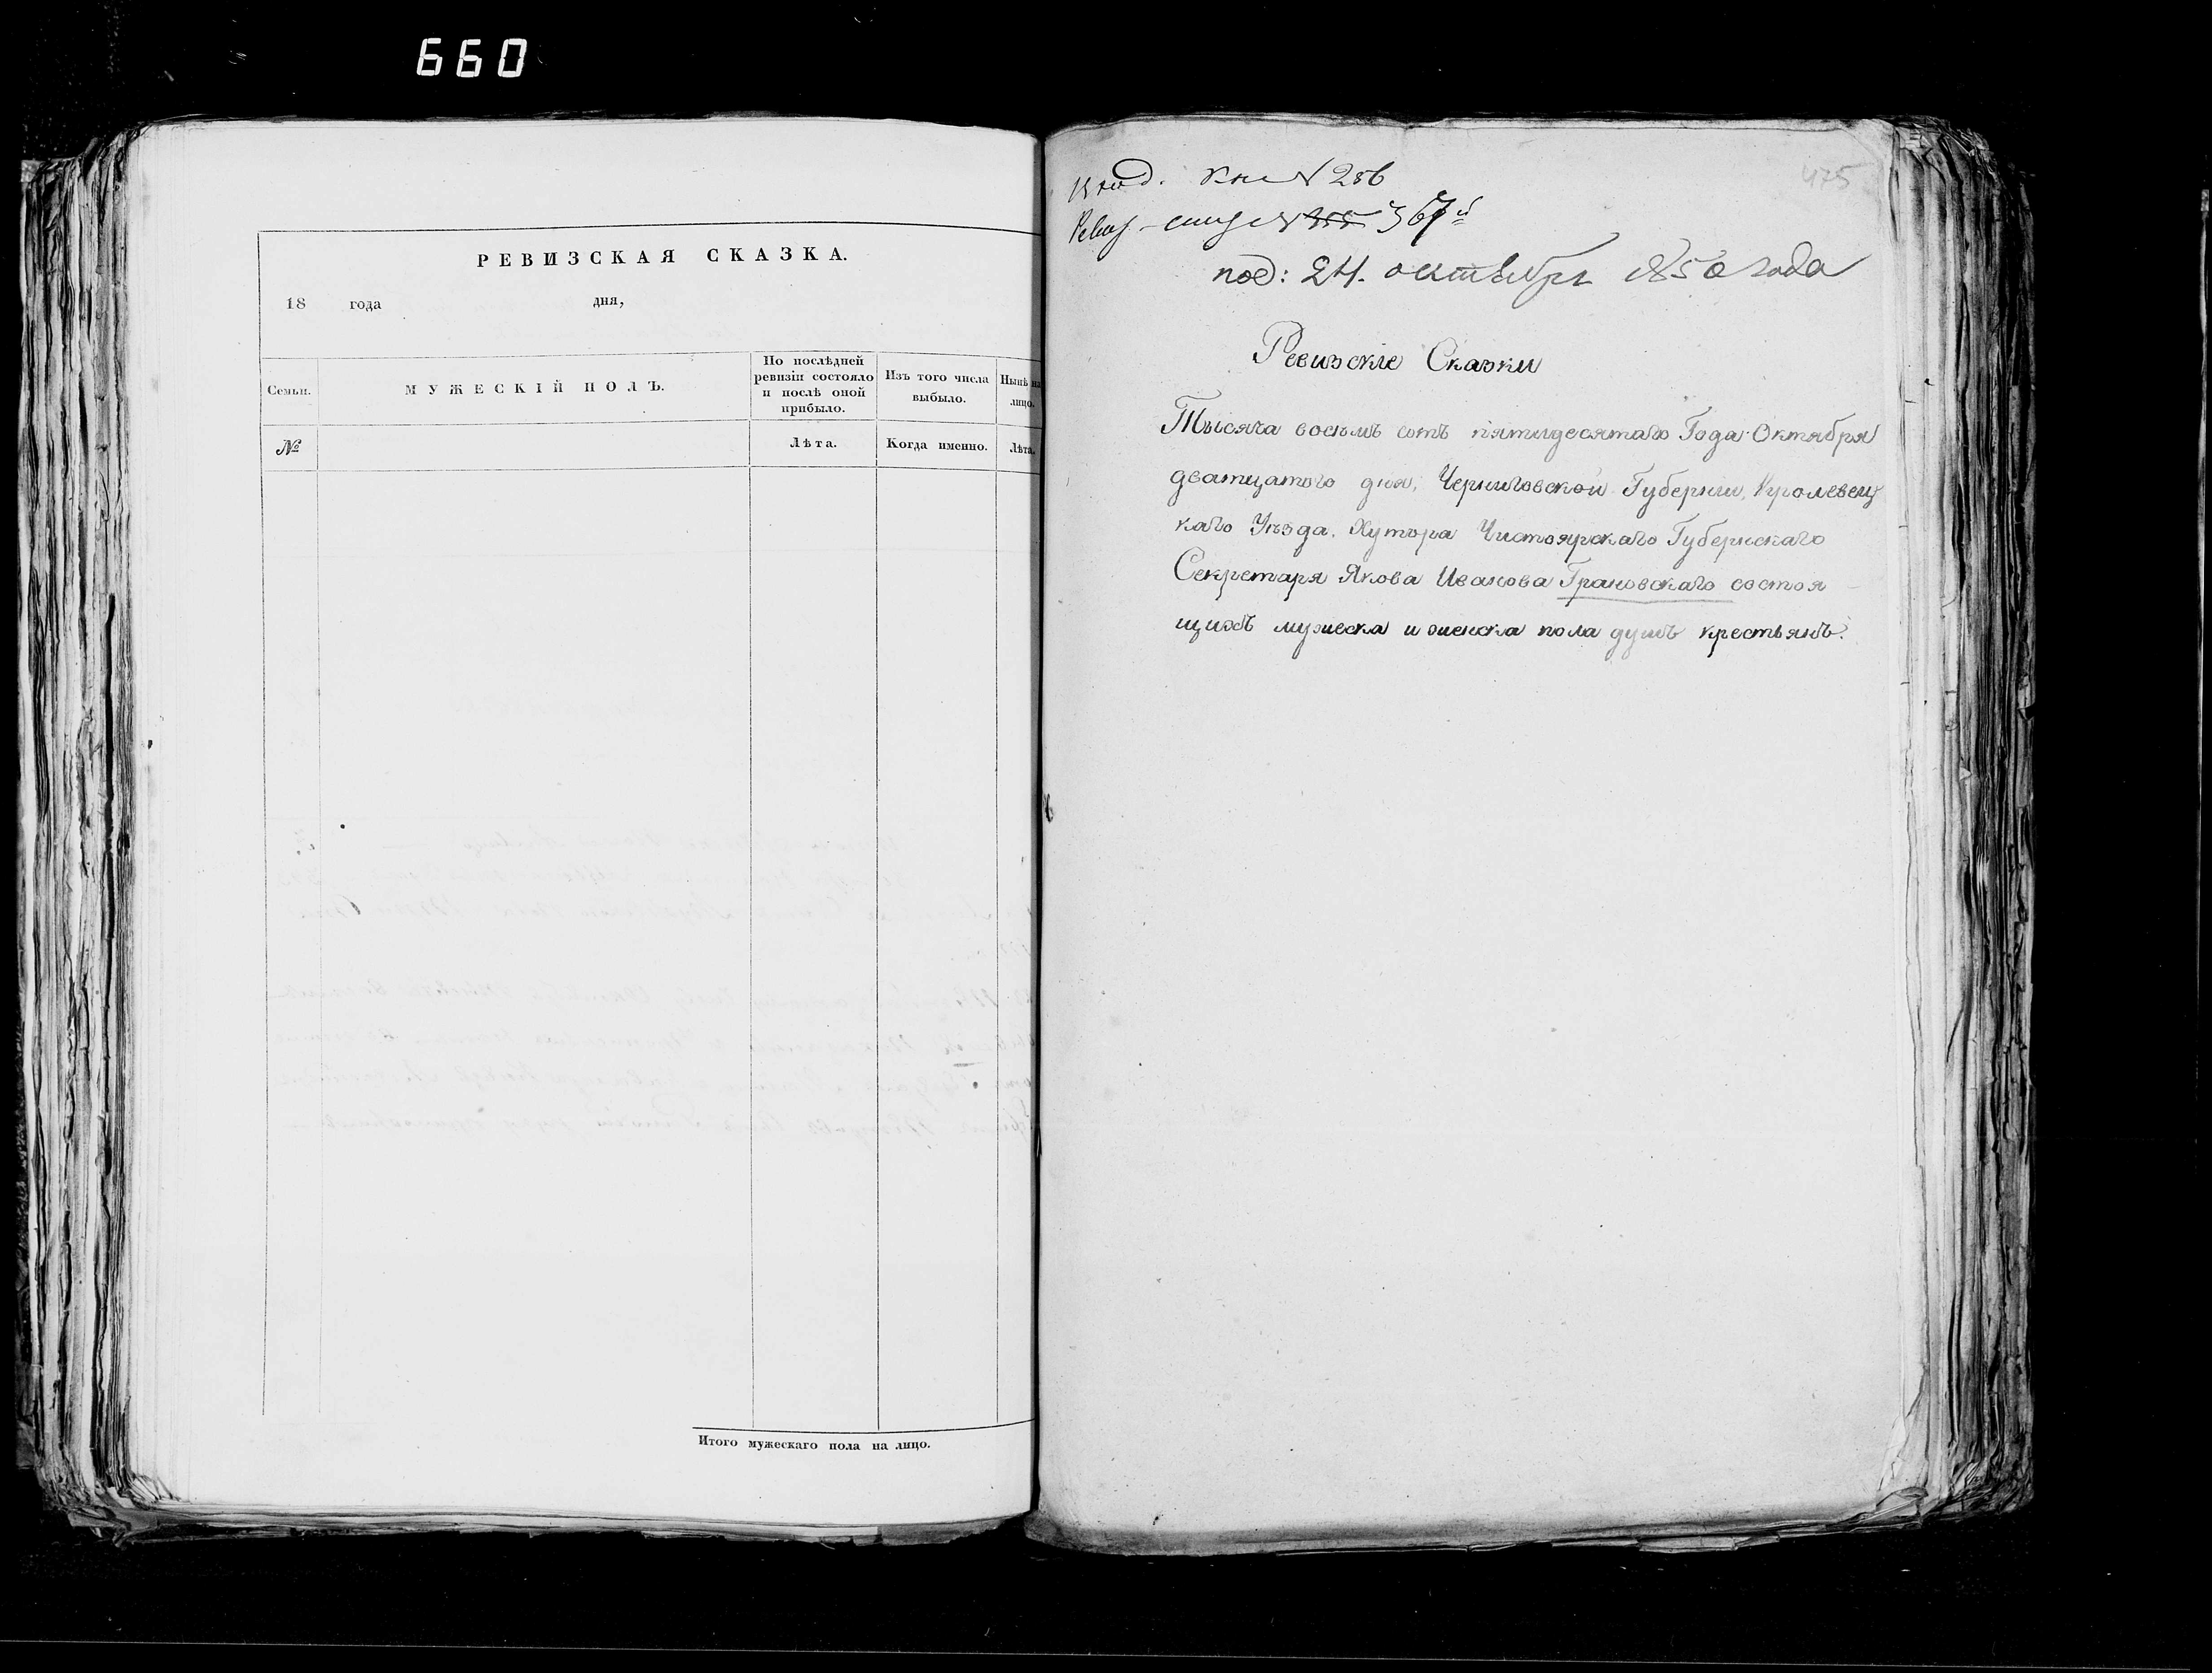 660
РЕВИЗСКАЯ СКАЗКА.
18 года дня,
Семьи.
МУЖЕСКІЙ ПОЛЪ.
По послѣдней
ревизіи состояло
и послѣ оной
прибыло.
Изъ того числа
выбыло.
Нынѣ на
лицо.
№
Лѣта.
Когда именно.
Лѣта.
Итого мужескаго пола на лицо.
475
№ 256
367
под: 24. октября 1850 года
Ревизскіе Сказки
Тысяча восемь сотъ пятидесятаго Года Октября
дватцатого дня, Черниговской Губерніи, Кролевец
каго Уѣзда. Хутора Чистоярскаго Губернскаго
Секретаря Якова Иванова Грановскаго состоя
щихъ мужеска и женска пола душъ крестьянъ.